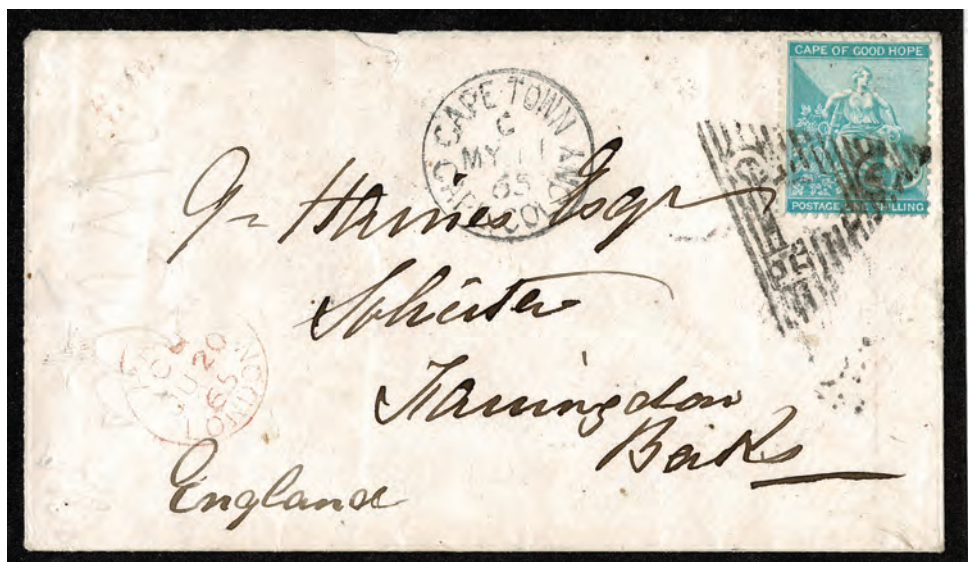 CAPE OF GOOD HOPE
POSTAGE ONE SHILLING
CAPE TOWN
C
MY 11
65
Haines Esqr
Solicitor
Farringdon
Berks
England
LONDON
JU 20
65